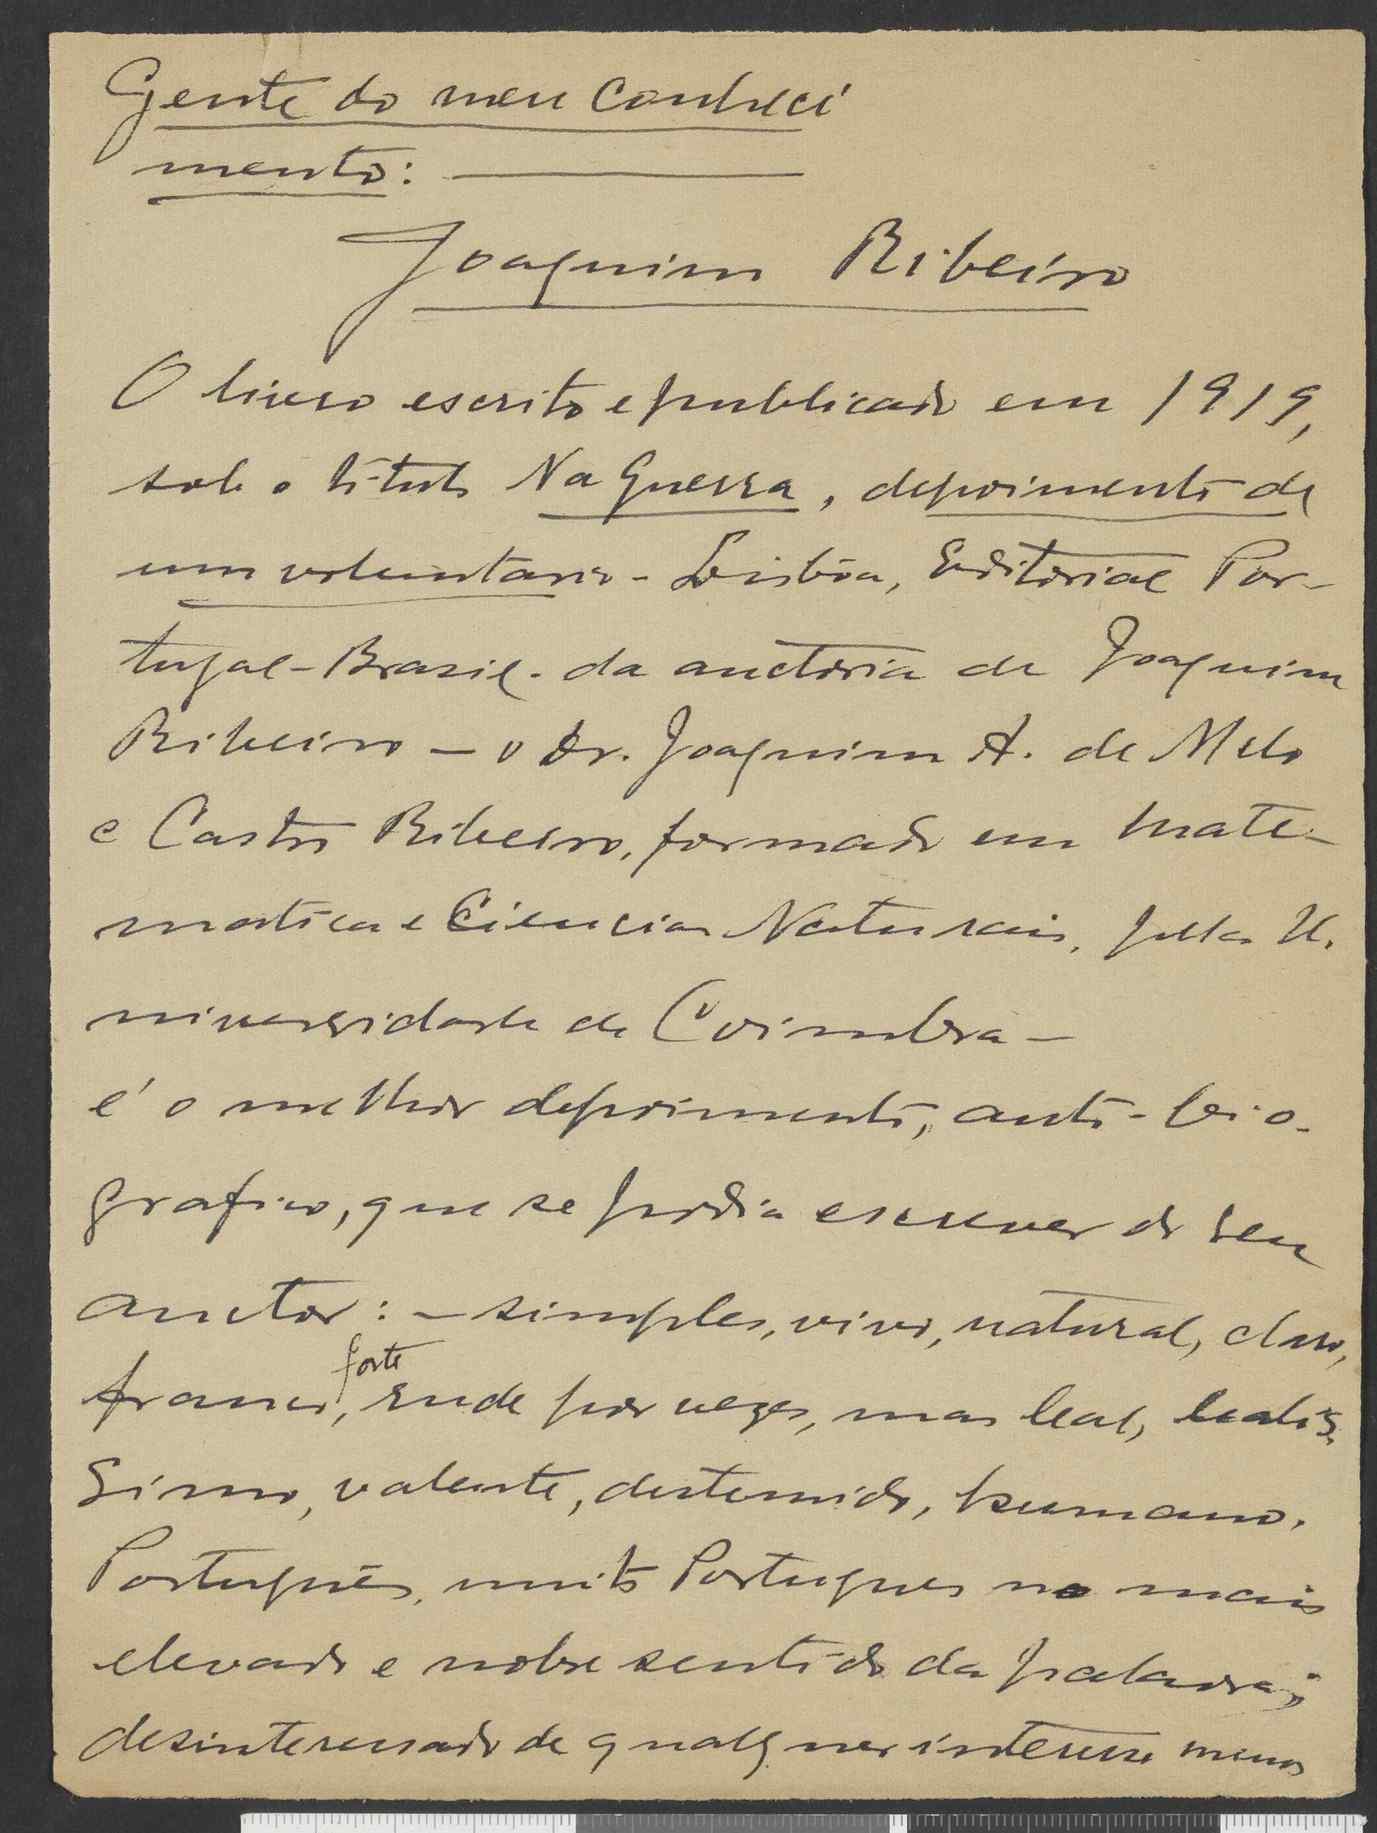 Gente do meu conheci
mento:
Joaquim Ribeiro
O livro escrito e publicado em 1919,
sob o titulo Na Guerra, depoimento de
um voluntario - Lisbôa, Editorial Por-
tugal-Brasil. da auctoria de Joaquim
Ribeiro - o Dr. Joaquim A. de Melo
e Castro Ribeiro, formado em Mate-
matica e Ciencias Naturais, pela U.
niversidade de Coimbra -
é o melhor depoimento, auto-bio-
grafico, que se podia escrever do seu
auctor: - simples, vivo, natural, claro,
franco, forte, rude por vezes, mas leal, lealis-
simo, valente, destemido, humano.
Português, muito Portugues no mais
elevado e nobre sentido da palavra;
desinteressado de qualquer interesse menos